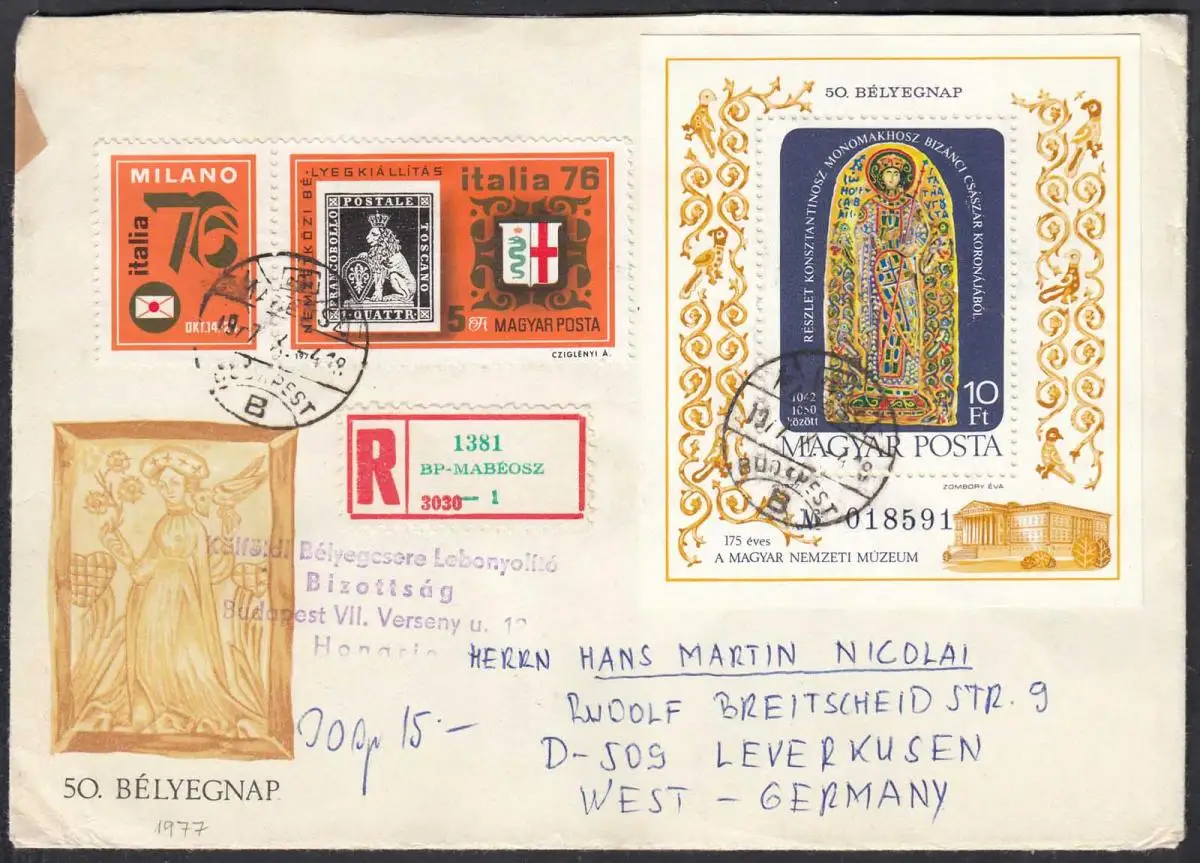 MILANO
italia 76
OKT.14-
NEMZETKÖZI BÉLYEGKIÁLLÍTÁS
italia 76
FRANCOBOLLO
POSTALE
TOSCANO
1 QUATTR.
5 Ft MAGYAR POSTA
CZIGLÉNYI A.
BUDAPEST
B
50. BÉLYEGNAP
RÉSZLET KONSZTANTINOSZ MONOMAKHOSZ BIZÁNCI CSÁSZÁR KORONÁJÁBÓL.
1042
1050
között
10
Ft
MAGYAR POSTA
ZOMBORY ÉVA
BUDAPEST
B
№ 018591
175 éves
A MAGYAR NEMZETI MÚZEUM
R
1381
BP-MABÉOSZ
3030 — 1
Külföldi Bélyegcsere Lebonyolító
Bizottság
Budapest VII. Verseny u.
Hongrie
HERRN HANS MARTIN NICOLAI
RUDOLF BREITSCHEID STR. 9
D-509 LEVERKUSEN
WEST - GERMANY
15.-
50. BÉLYEGNAP
1977